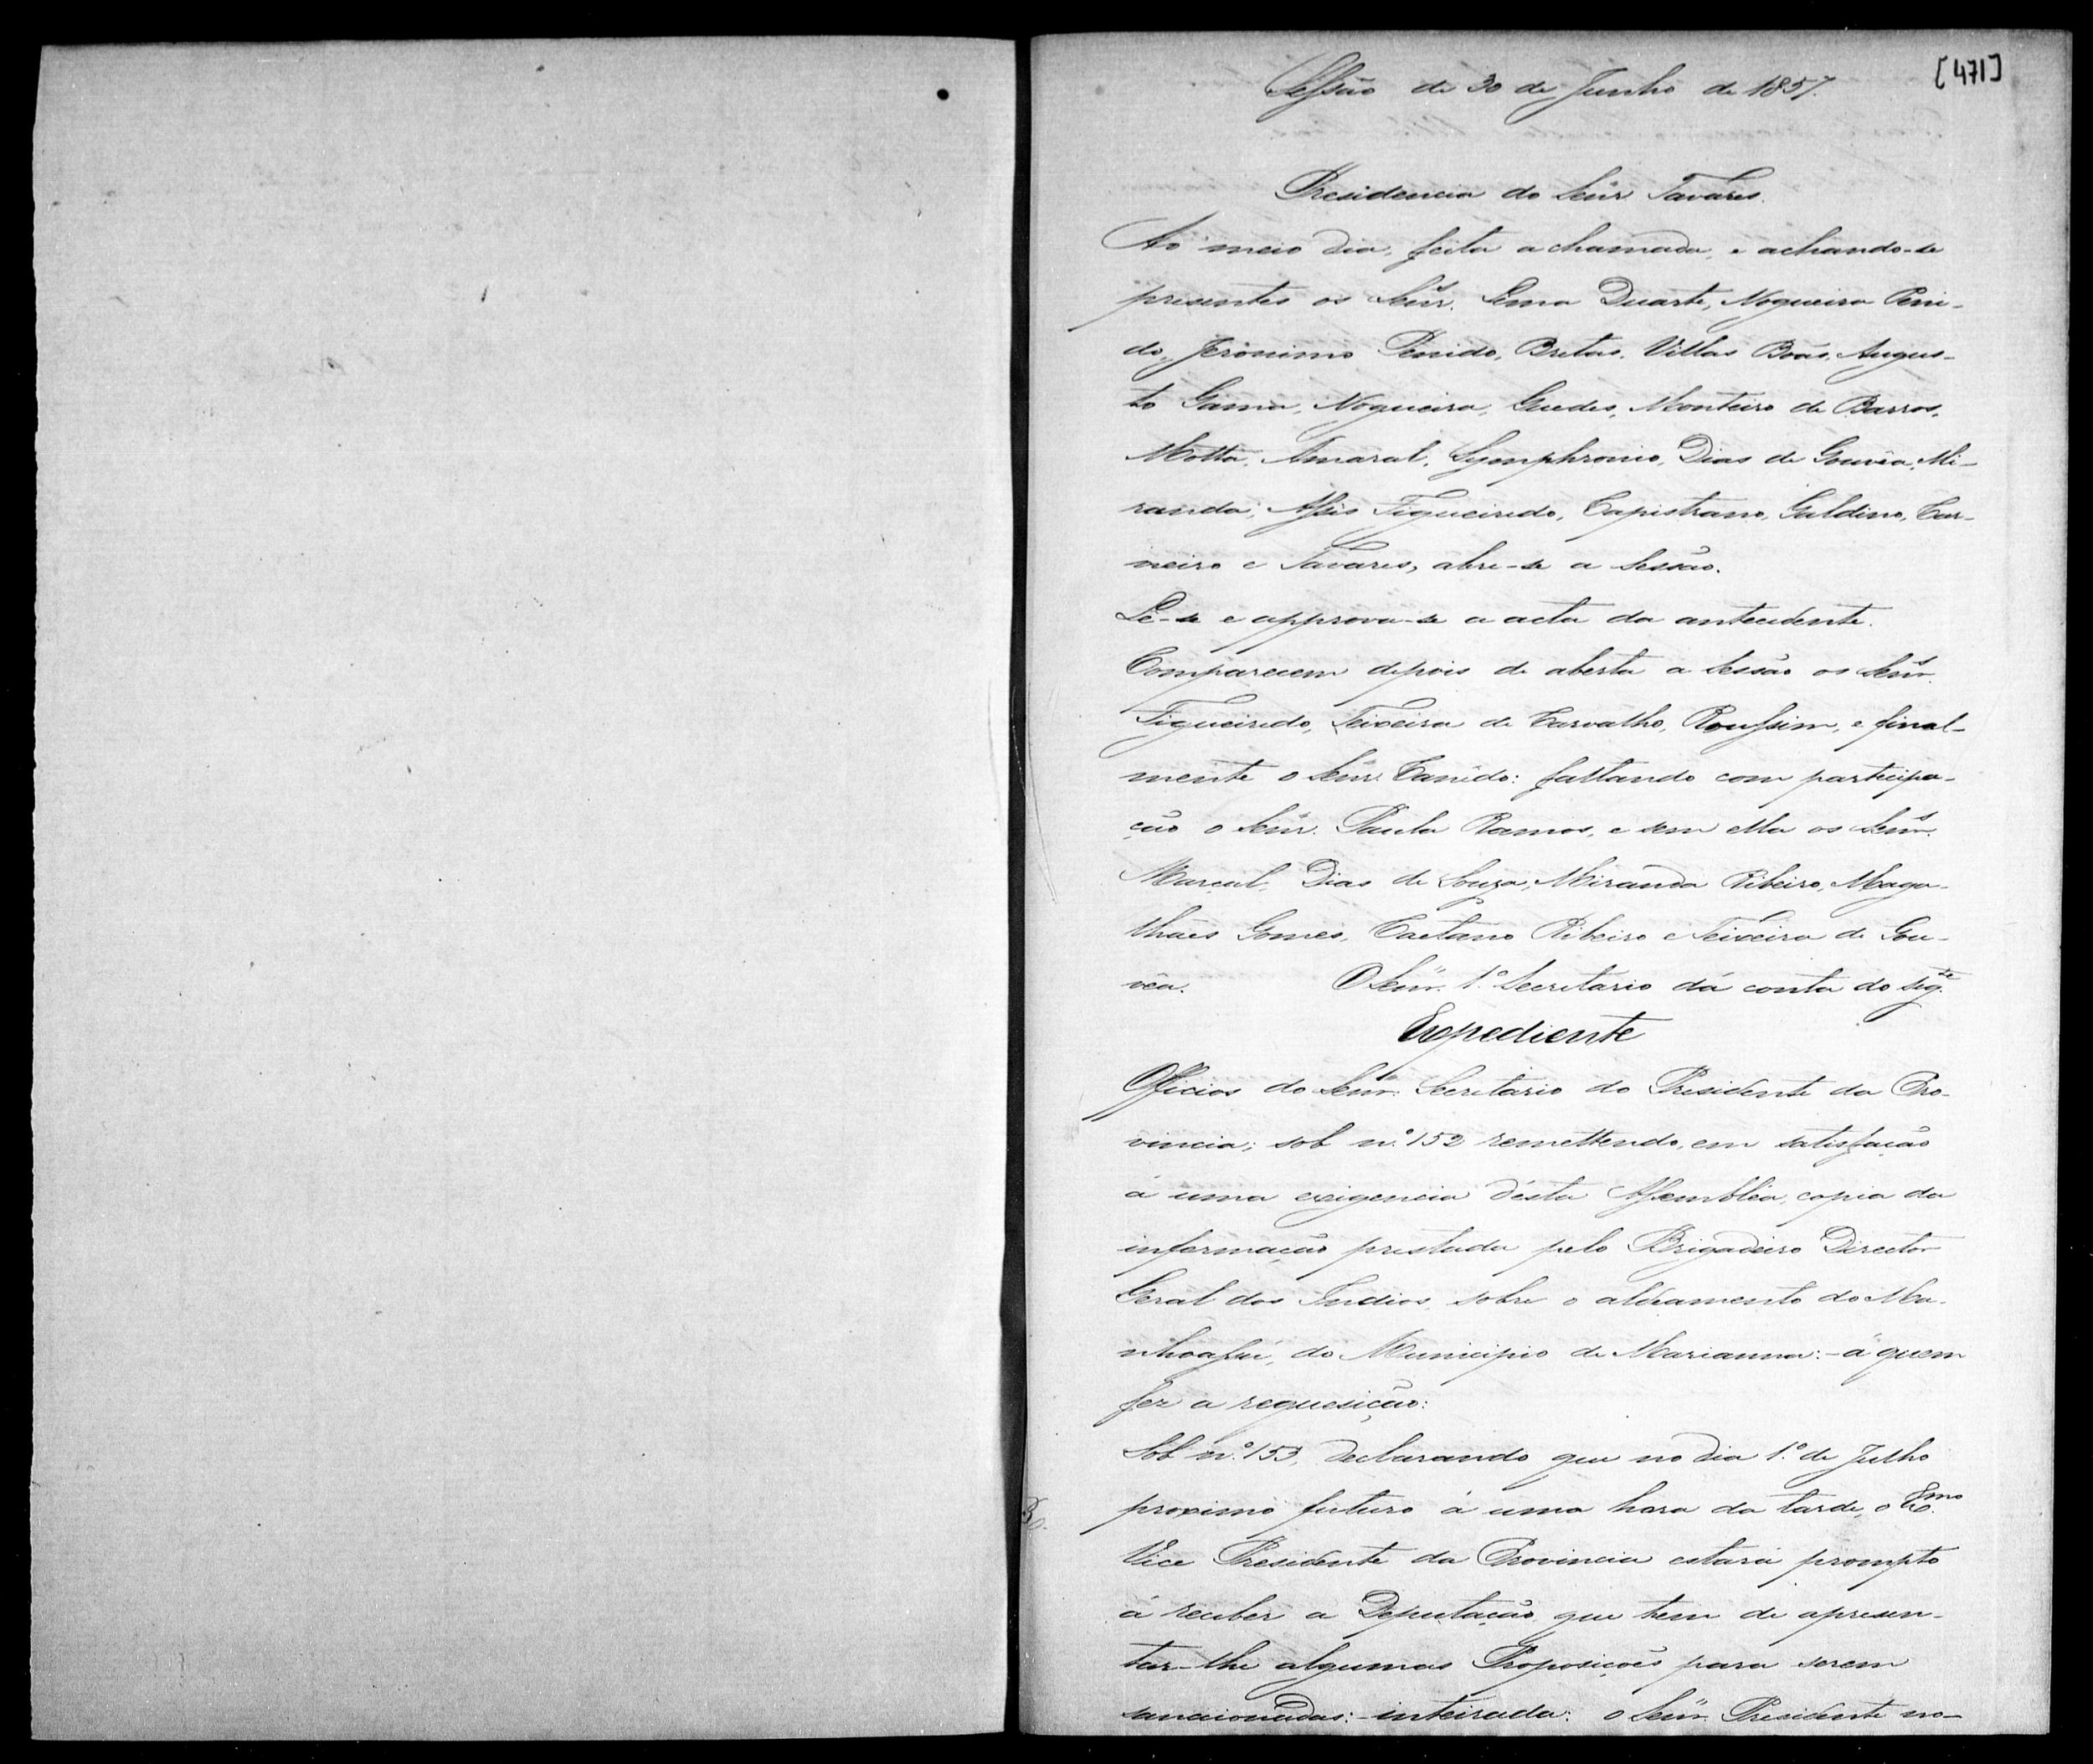 [471]
Sessão de 30 de Junho de 1857.
Presidencia do Senr. Tavares.
Ao meio dia, feita a chamada, e achando-se
presentes os Senrs. Lema Duarte, Nogueira Peni-
do, Jeronimo Penido, Bretas, Villas Boas, Augus-
to Gama, Nogueira, Guedes, Monteiro de Barros,
Motta, Amaral, Symphronio, Dias de Gouvêa, Mi-
randa, Assis Figueiredo, Capistrano, Galdino, Car-
neiro e Tavares, abre-se a Sessão.
Lê-se e approva-se a acta da antecedente.
Comparecem depois de aberta a Sessão os Senrs.
Figueiredo, Teixeira de Carvalho, Roussim, e final-
mente o Senr. Canêdo: faltando com participa-
ção o Senr. Paula Ramos, e sem ella os Senrs.
Marçal, Dias de Souza, Miranda Ribeiro, Maga-
lhães Gomes, Caetano Ribeiro e Teixeira de Gou-
vêa. O Senr. 1º Secretario dá conta do segte
Expediente
Officios do Senr. Secretario do Presidente da Pro-
vincia; sob nº 152 remettendo, em satisfação
á uma exigencia d'esta Assembléa, copia da
informação prestada pelo Brigadeiro Director
Geral dos Indios, sobre o aldeamento do Ma-
nhoassú, do Municipio de Marianna: - á quem
fez a requesição:
Sob nº 153, declarando que no dia 1º de Julho
proximo futuro á uma hora da tarde, o Exmo
Vice Presidente da Provincia estará prompto
á receber a Deputação que tem de apresen-
tar-lhe algumas Proposições para serem
sanccionadas: - inteirada: o Senr. Presidente no-